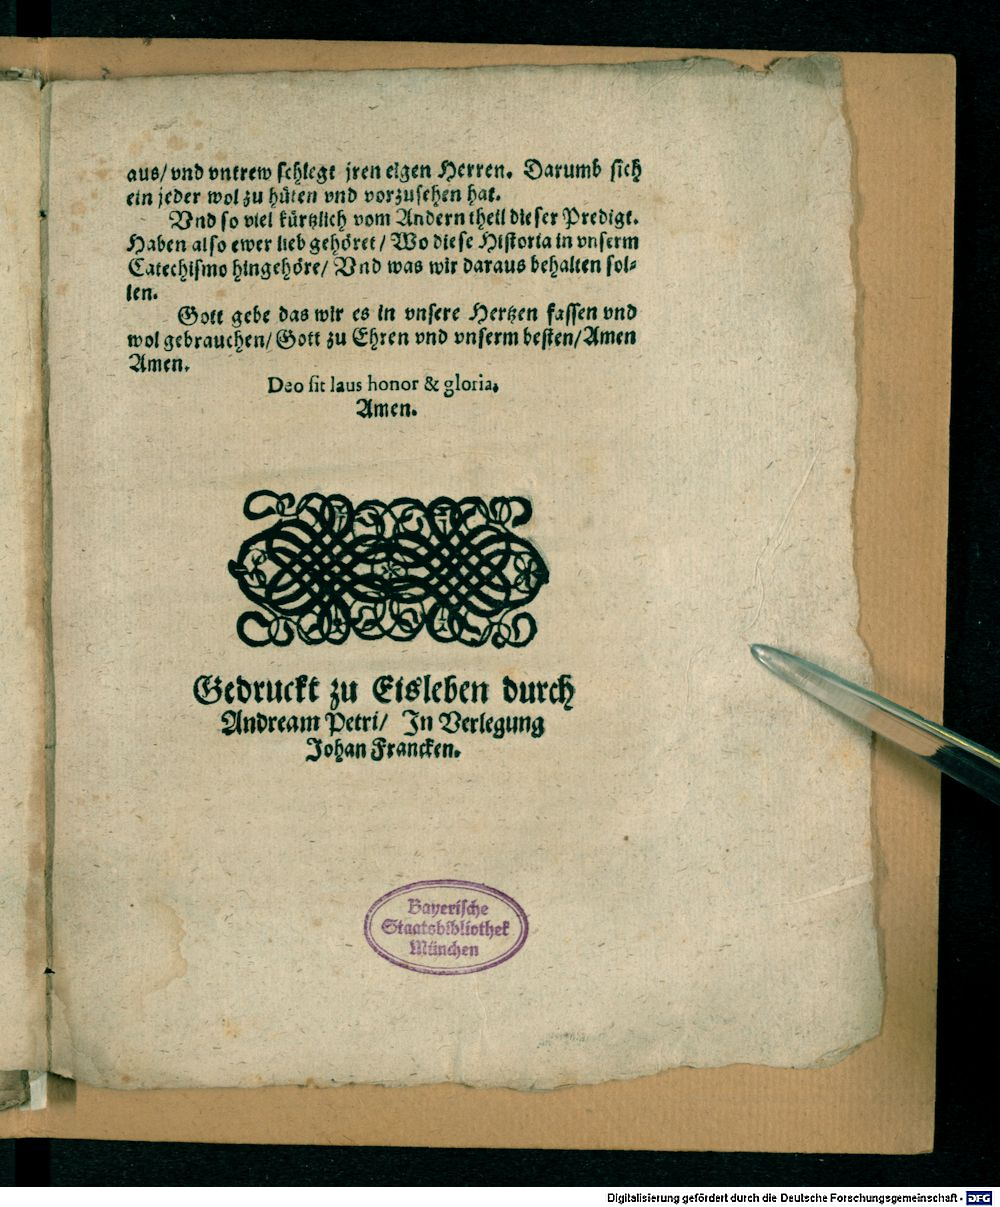 aus/ vnd vntrew schlegt jren eigen Herren. Darumb sich
ein jeder wol zu hüten vnd vorzusehen hat.
Vnd so viel kürtzlich vom Andern theil dieser Predigt.
Haben also ewer lieb gehöret/ Wo diese Historia in vnserm
Catechismo hingehöre/ Vnd was wir daraus behalten sol-
len.
Gott gebe das wir es in vnsere Hertzen fassen vnd
wol gebrauchen/ Gott zu Ehren vnd vnserm besten/ Amen
Amen.
Deo sit laus honor & gloria.
Amen.
Gedruckt zu Eisleben durch
Andream Petri/ In Verlegung
Johan Francken.
Bayerische
Staatsbibliothek
München
Digitalisierung gefördert durch die Deutsche Forschungsgemeinschaft - DFG